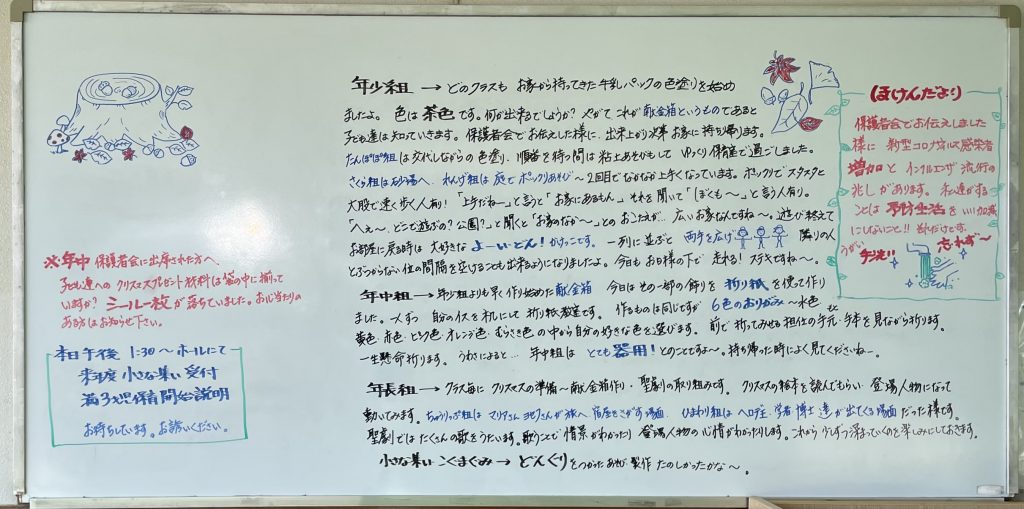 ※年中 保護者会に出席された方へ、
子ども達への クリスマスプレゼント 材料は袋の中に揃って
いますか? シール一枚が落ちていました。お心当たりの
ある方はお知らせ下さい。
本日午後 1:30〜ホールにて
来年度 小さな集い 受付
満3才児保育開始説明
お待ちしています。お誘いください。
年少組 → どのクラスも お家から持ってきた牛乳パックの色塗りを始め
ましたよ。 色は 茶色 です。何が出来るでしょうか? やがて これが 献金箱というものであると
子ども達は知っていきます。 保護者会でお伝えした様に、出来上がり次第 お家に持ち帰ります。
たんぽぽ組は交代しながらの色塗り、順番を待つ間は粘土あそびもして ゆっくり保育室で過ごしました。
さくら組は砂場へ、れんげ組は庭でポックリあそび〜2回目でなかなか上手くなっています。ポックリでスタスタと
大股で速く歩く人有り! 「上手だね〜」と言うと「お家にあるもん。」それを聞いて「ぼくも〜」と言う人有り。
「へぇ〜、どこで遊ぶの? 公園?」と聞くと「お家のなか〜」との おこたえが、広いお家なんですね〜。遊び終えて
お部屋に戻る時は 大好きな よーいどん! かけっこです。 一列に並ぶと 両手を広げ 隣りの人
とぶつからない位の間隔を空けることも出来るようになりましたよ。今日もお日様の下で 走れる! ステキですね〜。
年中組 → 年少組よりも早く作り始めた献金箱 今日はその一部の飾りを 折り紙を使って作り
ました。 自分のイスを机にして 折り紙教室です。 作るものは同じですが 6色のおりがみ〜水色
黄色・赤色・ピンク色・オレンジ色・むらさき色 の中から自分の好きな色を選びます。 前で折ってみせる担任の手元・手本を見ながら折ります。
一生懸命折ります。 うわさによると… 年中組は とても 器用! とのことですよ〜。持ち帰った時によく見てくださいねー。
年長組 → クラス毎に クリスマスの準備〜献金箱作り・聖劇の取り組みです。 クリスマスの絵本を読んでもらい 登場人物になって
動いてみます。 ちゅうりっぷ組は マリアさん ヨセフさんが旅へ 宿屋をさがす場面、 ひまわり組は ヘロデ王、学者・博士達が出てくる場面だった様です。
聖劇では たくさんの歌をうたいます。歌うことで 情景がわかったり 登場人物の心情がわかったりします。これから 少しずつ深まっていくのを楽しみにしておきます。
小さな集い こくまぐみ → どんぐりをつかったあそび・製作 たのしかったかな〜。
ほけんだより
保護者会でお伝えしました
様に 新型コロナ 感染者
増加と インフルエンザ 流行の
兆しがあります。 私達がする
ことは 予防生活を いい加減
にしないこと!! それだけです。
うがい 手洗い 忘れず〜